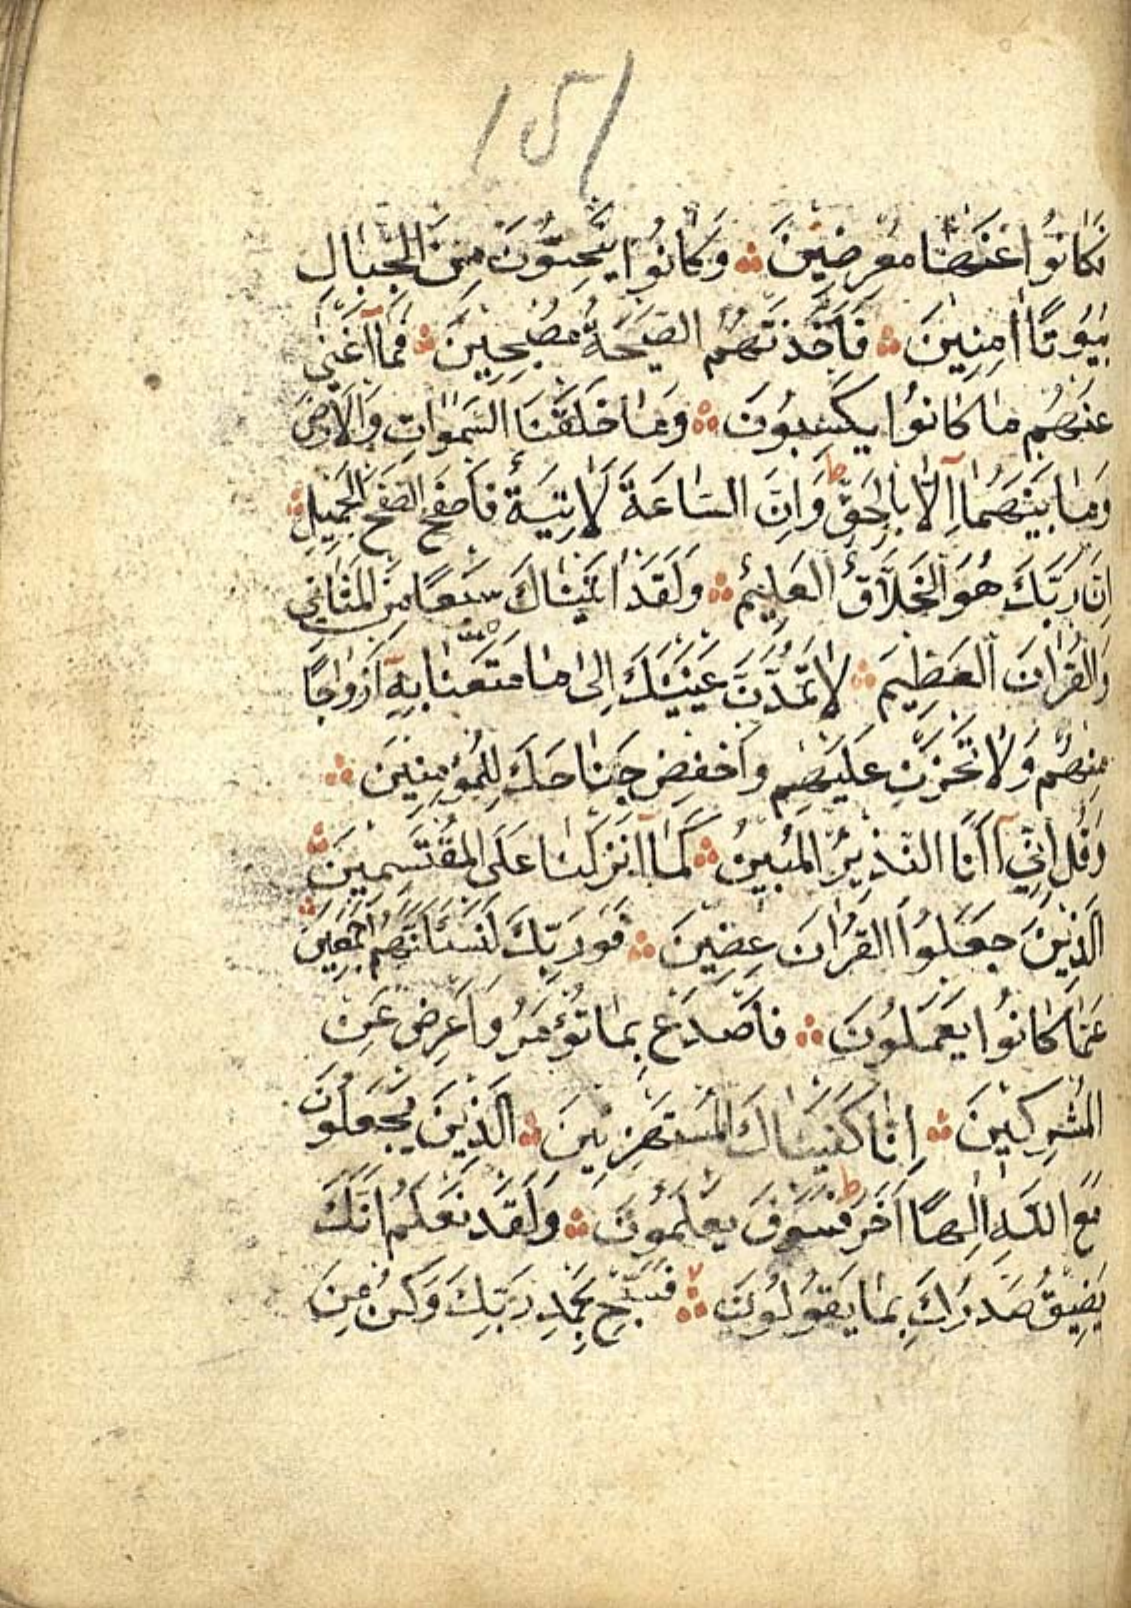 151
فَكَانُوا عَنْهَا مُعْرِضِينَ ۞ وَكَانُوا يَنْحِتُونَ مِنَ الْجِبَالِ
بُيُوتًا اٰمِنِينَ ۞ فَاَخَذَتْهُمُ الصَّيْحَةُ مُصْبِحِينَ ۞ فَمَآ اَغْنٰى
عَنْهُمْ مَا كَانُوا يَكْسِبُونَ ۞ وَمَا خَلَقْنَا السَّمٰوَاتِ وَالْاَرْضَ
وَمَا بَيْنَهُمَآ اِلَّا بِالْحَقِّ ط وَاِنَّ السَّاعَةَ لَاٰتِيَةٌ فَاصْفَحِ الصَّفْحَ الْجَمِيلَ ۞
اِنَّ رَبَّكَ هُوَ الْخَلَّاقُ الْعَلِيمُ ۞ وَلَقَدْ اٰتَيْنَاكَ سَبْعًا مِنَ الْمَثَانِي
وَالْقُرْاٰنَ الْعَظِيمَ ۞ لَا تَمُدَّنَّ عَيْنَيْكَ اِلٰى مَا مَتَّعْنَا بِهِٓ اَزْوَاجًا
مِنْهُمْ وَلَا تَحْزَنْ عَلَيْهِمْ وَاخْفِضْ جَنَاحَكَ لِلْمُؤْمِنِينَ ۞
وَقُلْ اِنِّيٓ اَنَا النَّذِيرُ الْمُبِينُ ۞ كَمَآ اَنْزَلْنَا عَلَى الْمُقْتَسِمِينَ ۞
اَلَّذِينَ جَعَلُوا الْقُرْاٰنَ عِضِينَ ۞ فَوَرَبِّكَ لَنَسْئَلَنَّهُمْ اَجْمَعِينَ ۞
عَمَّا كَانُوا يَعْمَلُونَ ۞ فَاصْدَعْ بِمَا تُؤْمَرُ وَاَعْرِضْ عَنِ
الْمُشْرِكِينَ ۞ اِنَّا كَفَيْنَاكَ الْمُسْتَهْزِئِينَ ۞ اَلَّذِينَ يَجْعَلُونَ
مَعَ اللهِ اِلٰهًا اٰخَرَ ط فَسَوْفَ يَعْلَمُونَ ۞ وَلَقَدْ نَعْلَمُ اَنَّكَ
يَضِيقُ صَدْرُكَ بِمَا يَقُولُونَ ۞ فَسَبِّحْ بِحَمْدِ رَبِّكَ وَكُنْ مِنَ